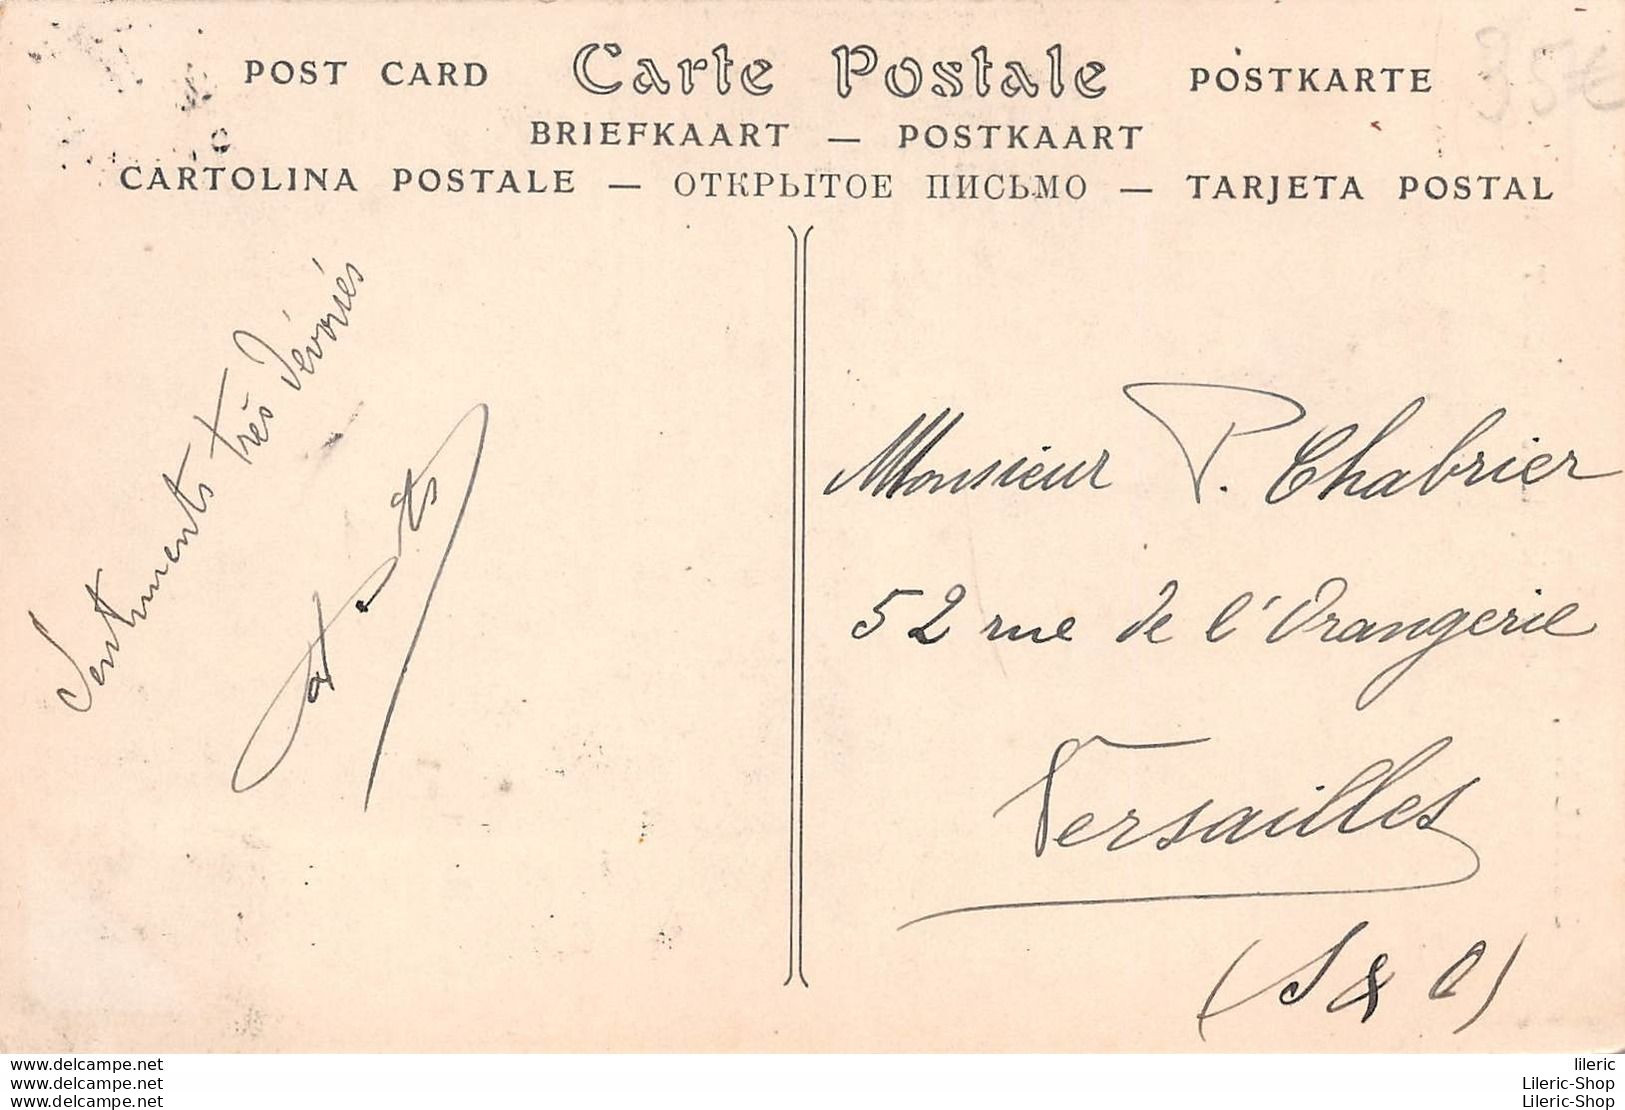 POST CARD Carte Postale POSTKARTE
BRIEFKAART — POSTKAART
CARTOLINA POSTALE — ОТКРЫТОЕ ПИСЬМО — TARJETA POSTAL
Sentiments très dévoués
Monsieur P. Chabrier
52 rue de l'Orangerie
Versailles
(S & O)
www.delcampe.net
www.delcampe.net
www.delcampe.net
lileric
Lileric-Shop
Lileric-Shop